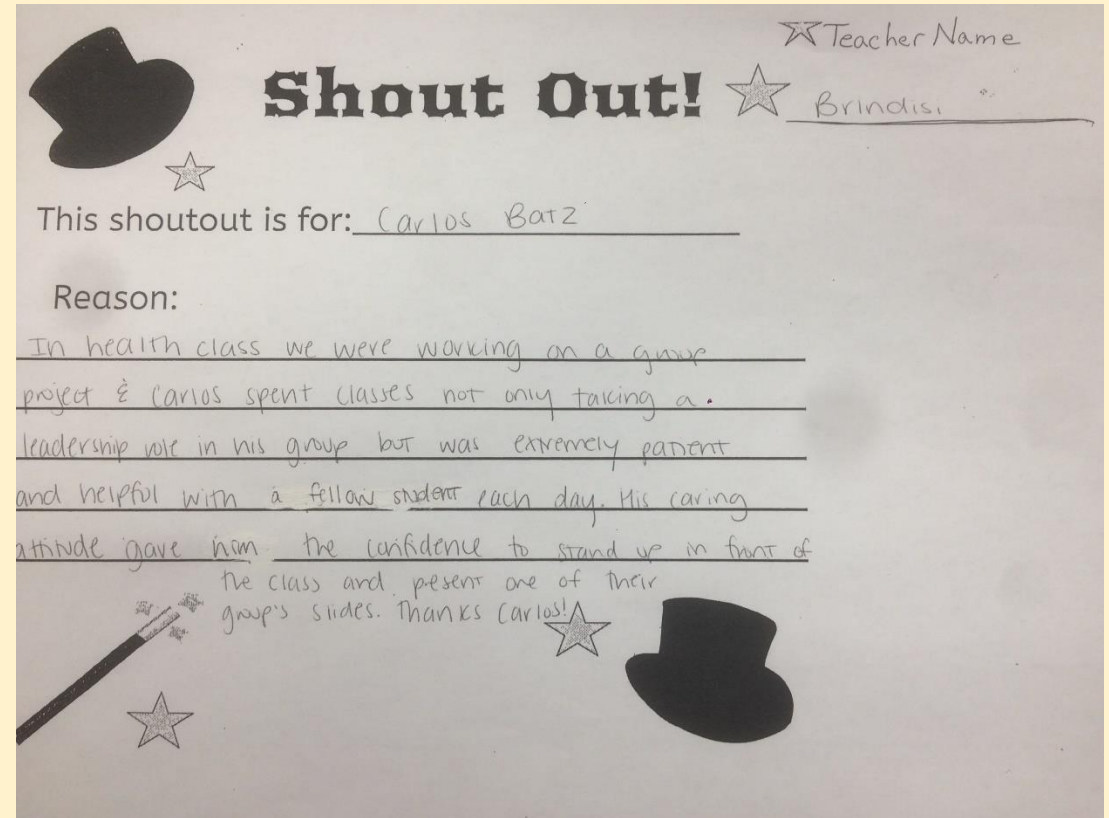 Teacher Name
Shout Out!
Brindisi
This shoutout is for: Carlos Batz
Reason:
In health class we were working on a group
project & Carlos spent classes not only taking a
leadership role in his group but was extremely patient
and helpful with a fellow student each day. His caring
attitude gave him the confidence to stand up in front of
the class and present one of their
group's slides. Thanks Carlos!